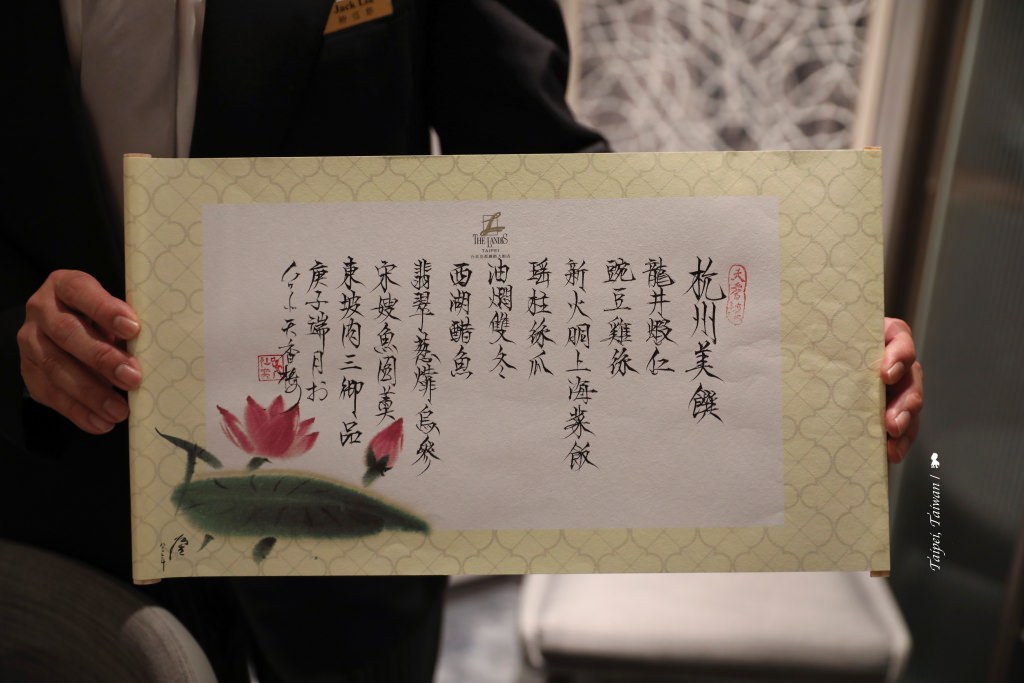 Jack
THE LANDIS
TAIPEI
天香樓
杭州美饌
龍井蝦仁
豌豆雞絲
新火胴上海菜飯
瑤柱絲瓜
油燜雙冬
西湖醋魚
翡翠蔥㸆烏參
宋嫂魚圓羹
東坡肉三御品
庚子端月於
台北天香樓
Taipei, Taiwan /